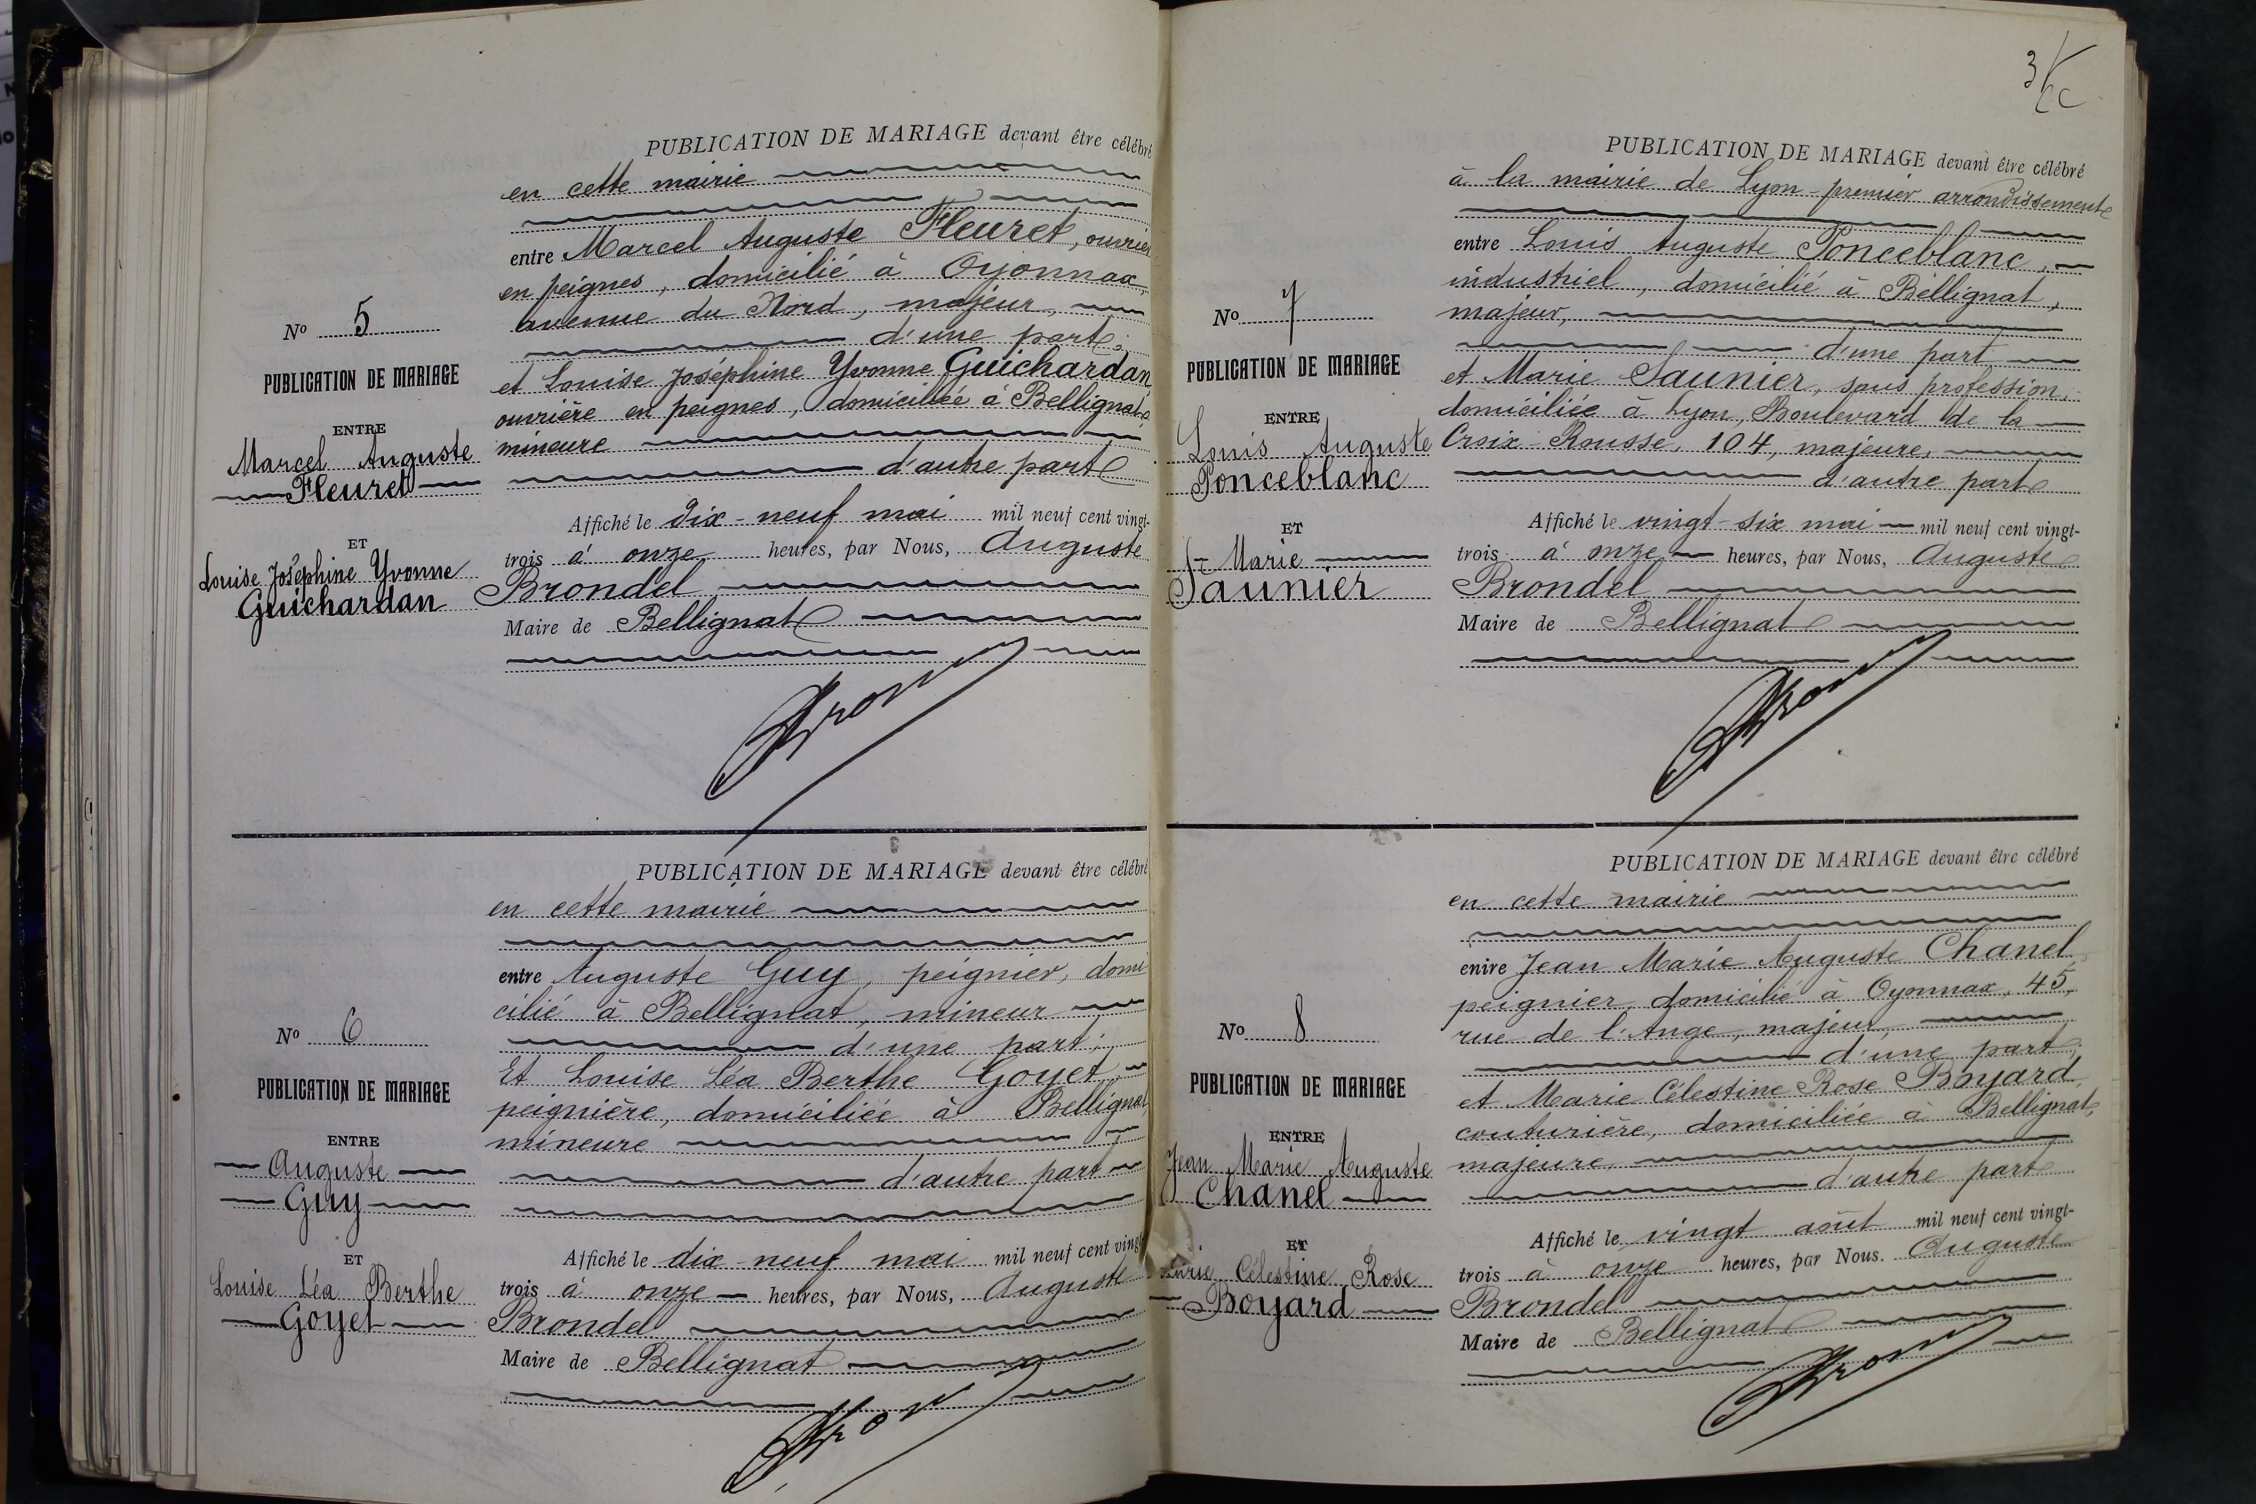 PUBLICATION DE MARIAGE devant être célébré
en cette mairie
entre Marcel Auguste Fleuret, ouvrier
en peignes, domicilié à Oyonnax,
avenue du Nord, majeur,
d'une part,
et Louise Joséphine Yvonne Guichardan,
ouvrière en peignes, domiciliée à Bellignat,
mineure
d'autre part
Affiché le dix-neuf mai mil neuf cent vingt-
trois à onze heures, par Nous, Auguste
Brondel
Maire de Bellignat
No 5
PUBLICATION DE MARIAGE
ENTRE
Marcel Auguste
Fleuret
ET
Louise Joséphine Yvonne
Guichardan
PUBLICATION DE MARIAGE devant être célébré
en cette mairie
entre Auguste Guy, peignier, domi
cilié à Bellignat, mineur
d'une part;
Et Louise Léa Berthe Goyet
peignière, domiciliée à Bellignat
mineure
d'autre part
Affiché le dix neuf mai mil neuf cent vingt
trois à onze heures, par Nous, Auguste
Brondel
Maire de Bellignat
No 6
PUBLICATION DE MARIAGE
ENTRE
Auguste
Guy
ET
Louise Léa Berthe
Goyet
PUBLICATION DE MARIAGE devant être célébré
à la mairie de Lyon-premier arrondissement
entre Louis Auguste Ponceblanc,
industriel, domicilié à Bellignat,
majeur,
d'une part
et Marie Saunier, sans profession,
domiciliée à Lyon, Boulevard de la
Croix-Rousse, 104, majeure,
d'autre part
Affiché le vingt-six mai mil neuf cent vingt-
trois à onze heures, par Nous, Auguste
Brondel
Maire de Bellignat
No 7
PUBLICATION DE MARIAGE
ENTRE
Louis Auguste
Ponceblanc
ET
Marie
Saunier
PUBLICATION DE MARIAGE devant être célébré
en cette mairie
entre Jean Marie Auguste Chanel,
peignier, domicilié à Oyonnax, 45,
rue de l'Ange, majeur,
d'une part,
et Marie Célestine Rose Boyard,
couturière, domiciliée à Bellignat,
majeure
d'autre part
Affiché le vingt août mil neuf cent vingt-
trois à onze heures, par Nous. Auguste
Brondel
Maire de Bellignat
No 8
PUBLICATION DE MARIAGE
ENTRE
Jean Marie Auguste
Chanel
ET
Marie Célestine Rose
Boyard